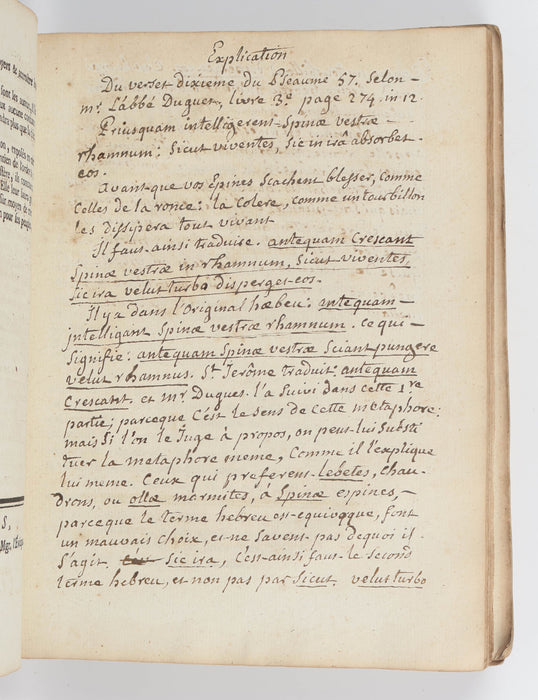 Explication
Du verset dixieme du Pseaume 57. Selon
mr. L'abbé Duguet, livre 3e page 274. in 12.
Priusquam intelligerent Spinæ vestræ
rhamnum: Sicut viventes, Sic in irâ absorbet
eos.
avant que vos Epines Scachent blesser, comme
Celles de la ronce: la Colere, comme un tourbillon
les dissipera tout vivant
Il faut ainsi traduire. antequam Crescant
Spinæ vestræ in rhamnum, Sicut viventes,
Sic ira velut turbo disperget eos.
Il y a dans l'Original hæbeu: antequam
intelligant Spinæ vestræ rhamnum. ce qui
Signifie: antequam Spinæ vestræ Sciant pungere
velut rhamnus. St. Jerôme traduit: antequam
Crescant. et mr Dugues. l'a Suivi dans cette 1re
partie; parceque C'est le Sens de Cette metaphore:
mais Si l'on le Juge à propos, on peut lui Substi
tuer la metaphore meme, Comme il l'explique
lui meme. Ceux qui preferent Lebetes, Chau-
drons, ou ollæ marmites, a Spinæ espines,
parceque le terme hebreu est equivoque, font
un mauvais Choix, et ne Savent pas dequoi il
S'agit. Sic ira, C'est ainsi faut le Second
terme hebreu, et non pas par Sicut. velut turbo
sont les
S,